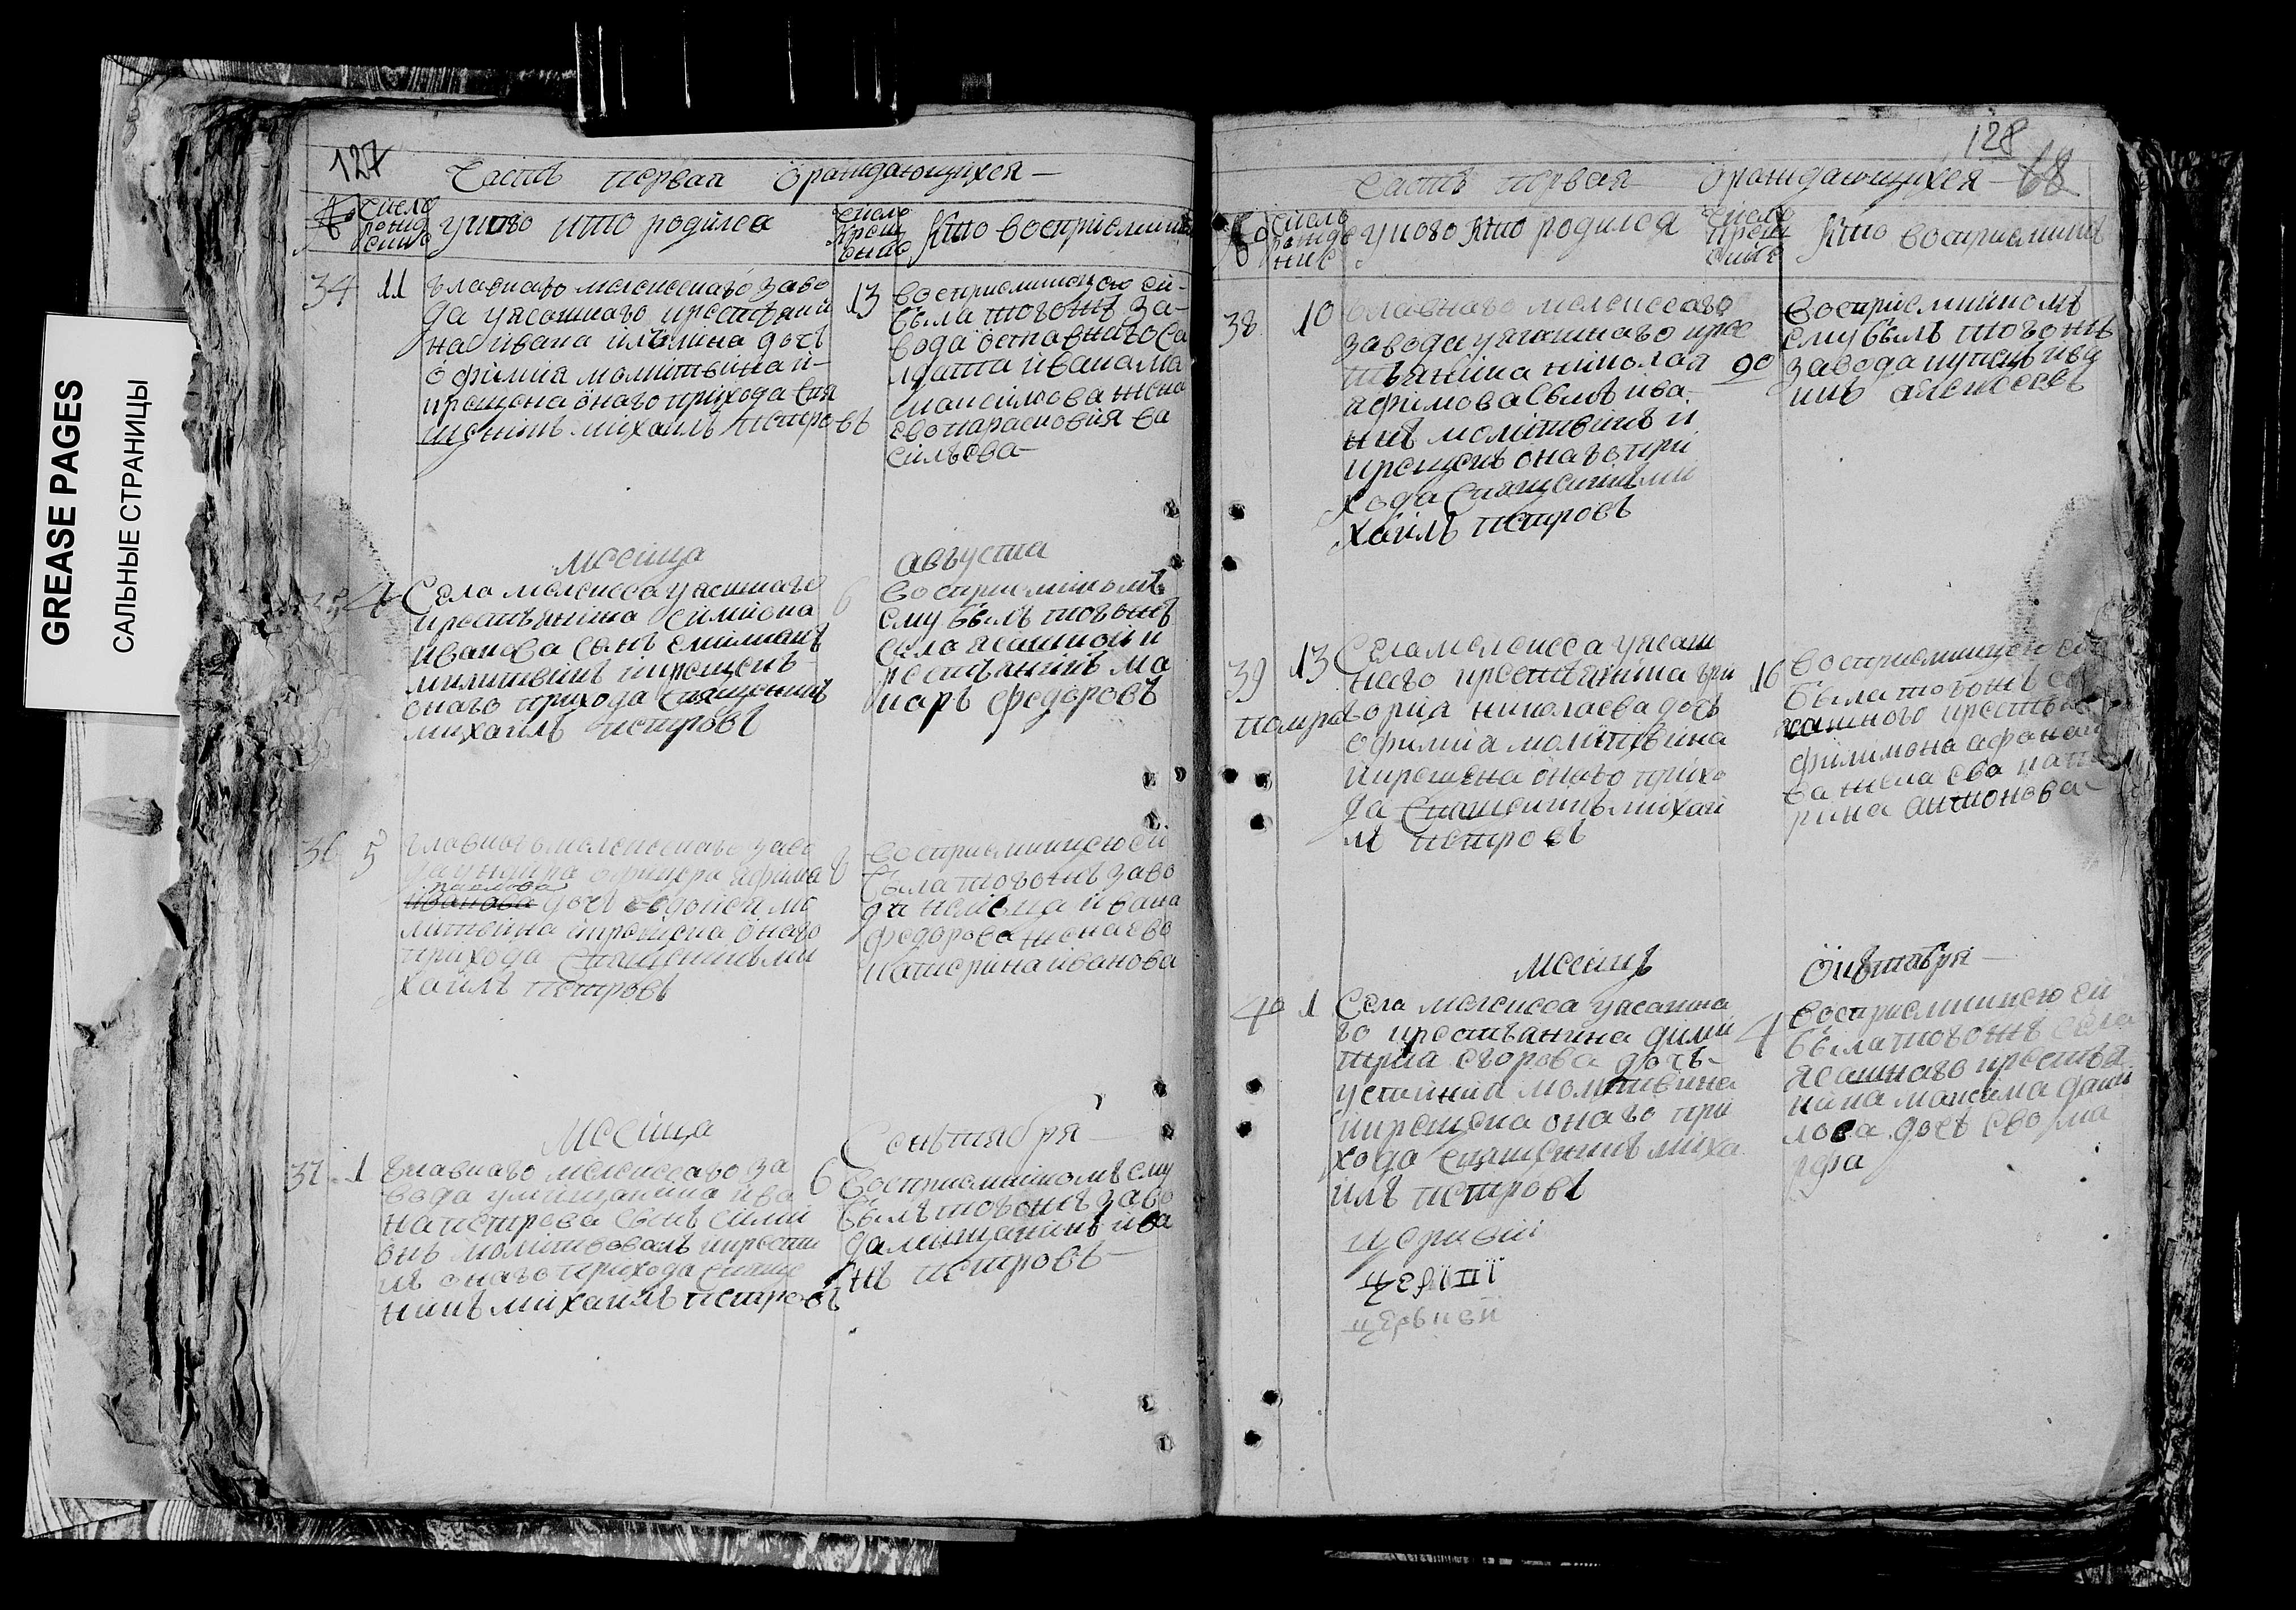 GREASE PAGES
САЛЬНЫЕ СТРАНИЦЫ
127
Часть первая ораждающихся
число рожде ение
укого кто родился
число крещ ение
Кто восприемники
34 11
главнаго мелекесскаго заво
да уясашнаго крестьяни
на ивана илѣина дочь
офимия молитвина и
крещена онаго прихода свя
щенникъ михаилъ петровъ
13
восприемницею ей
была тогожъ за-
вода оставного са
лдата ивана ма
жена
ево парасковия ва
сильева
месяца августа
4
Села мелекесса уясашнаго
крестьянина симиона
иванова сынъ емилианъ
милитвинъ икрещенъ
онаго прихода священникъ
михаилъ петровъ
6
восприемникомъ
ему былъ тогожъ
села ясашной к
рестьянинъ ма
каръ федоровъ
36 5
главного мелекескаго заво
да офицера ефима
павлова
иванова дочь евдокея мо
литвина икрещена онаго
прихода священникъ ми
хаилъ петровъ
8
восприемницею ей
была тогожъ заво
да ивана
федорова жена ево
катерина иванова
месяца Сеньтября
37 1
главнаго мелекессаго за
вода умищанина ива
на петрова сынъ сими
онъ молитвовалъ икрести
лъ онаго прихода свяще
никъ михаилъ петровъ
6
восприемникомъ ему
былъ тогожъ заво
да мищанинъ ива
нъ петровъ
128
68
Часть первая ораждающихся
число рожде ние
укого кто родился
число крещ ение
Кто восприемникъ
38 10
главнаго мелекессаго
завода уясашнаго крес
тьянина николая
ефимова сынъ ива
нъ молитвинъ и
крещенъ онаго при
хода священникъ ми
хаилъ петровъ
восприемникомъ
ему былъ тогожъ
завода купецъ
алексеевъ
39 13
помре
Села мелекесса уясаш
наго крестьянина гри
гория николаева дочь
офимиа молитвина
икрещена онаго прихо
да священникъ михаи
лъ петровъ
16
восприемницею ей
была тогожъ
ясашного крестья
филимона афанась
ва жена ево кате
рина антонова
месяцъ Окътября
40 1
Села мелекесса уясашна
го крестьянина дими
трия егорова дочь
устиния молитвина
икрещена онаго при
хода священникъ миха
илъ петровъ
4
восприемницею ей
была тогожъ села
ясашнаго крестья
нина максима дани
лова дочь ево ма
рфа